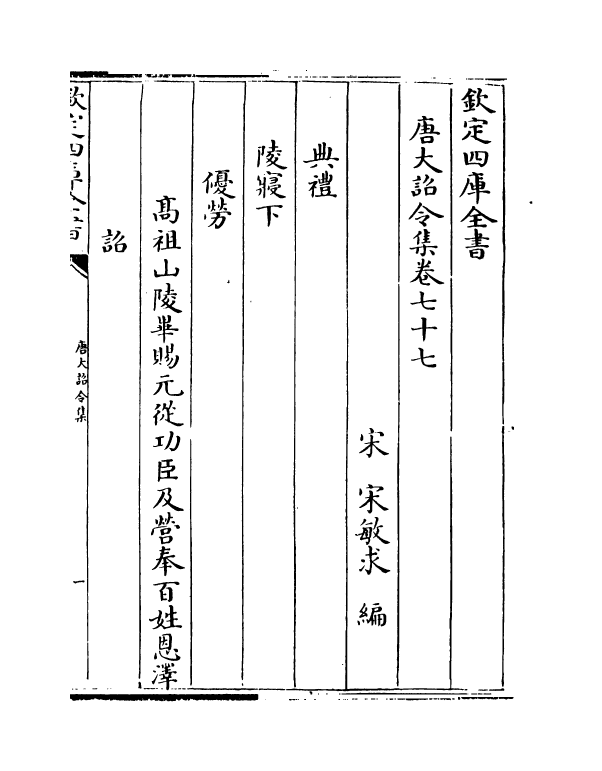 欽定四庫全書
唐大詔令集卷七十七
宋 宋敏求 編
典禮
陵寢下
優勞
髙祖山陵畢賜元從功臣及營奉百姓恩澤
詔
欽定四庫全書
唐大詔令集
一